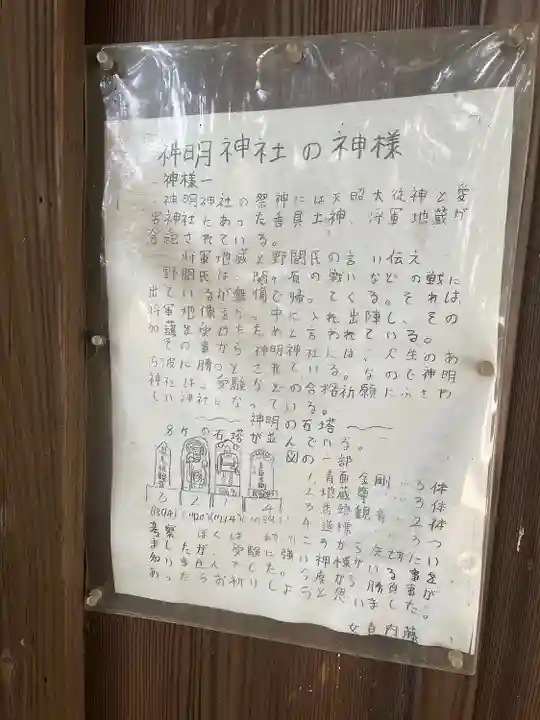 神明神社の神様
-神様-
神明神社の祭神には天照大徒神と愛
宕神社にあった香具土神、将軍地蔵が
合祀されている。
将軍地蔵と野間氏の言い伝え
野間氏は、関ヶ原の戦いなどの戦に
出ているが無傷で帰ってくる。それは、
将軍地像を 中に入れ出陣し、その
加護を受けたためと言われている。
その事から神明神社には、人生のあ
ら波に勝つとされている。なので神明
神社は、受験などの合格祈願にふさわ
しい神社になっている。
神明の石塔
8ヶの石塔が並んでいる。
図の一部
1.青面金剛 〃3体
2.地蔵尊 〃3体
3.馬頭観音 〃2体
4.道標 〃3つ
3 2 1 4
考察 ぼくは幼いころから 切にいを
ましたが、受験に強い神様がいる事を
知りませんでした。今度から勝負事が
あったらお祈りしようと思いました。
内藤